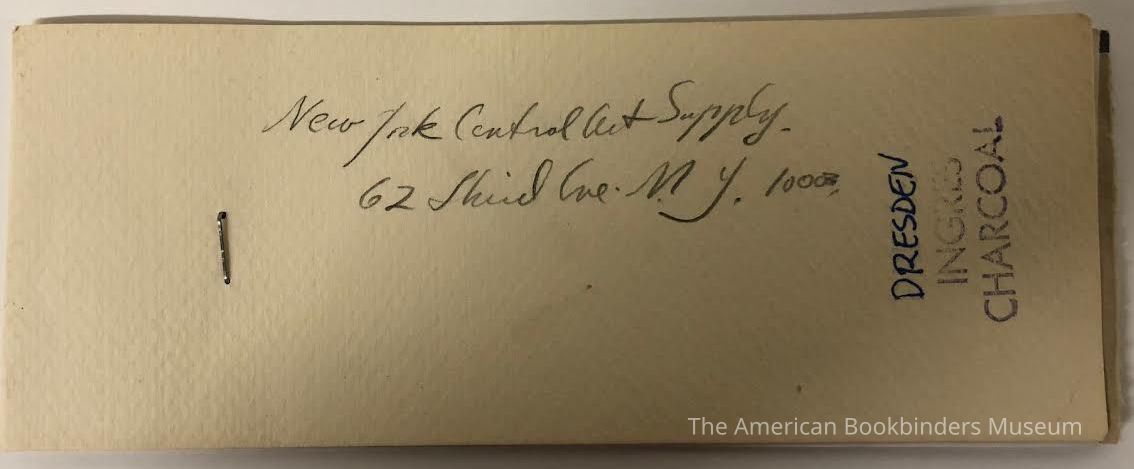 New York Central Art Supply.
62 Third Ave. N. Y. 10003
DRESDEN
INGRES
CHARCOAL
The American Bookbinders Museum